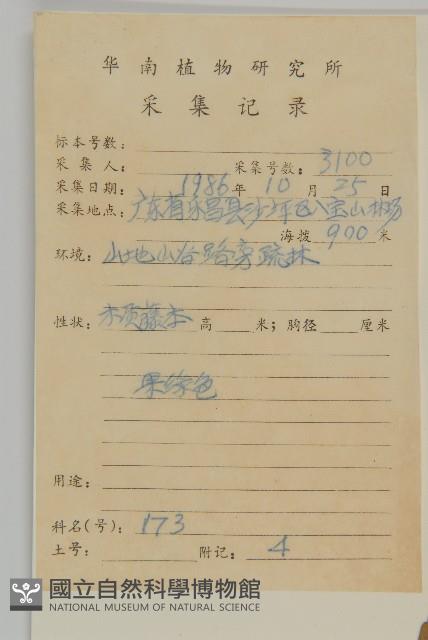 华南植物研究所
采集记录
标本号数:
采集人: 采集号数: 3100
采集日期: 1986年10月25日
采集地点: 广东省乐昌县沙坪区八宝山林场
海拨 900 米
环境: 山地山谷路旁疏林
性状: 木质藤本 高 米; 胸径 厘米
果绿色
用途:
科名(号): 173
土号: 附记: 4
國立自然科學博物館
NATIONAL MUSEUM OF NATURAL SCIENCE